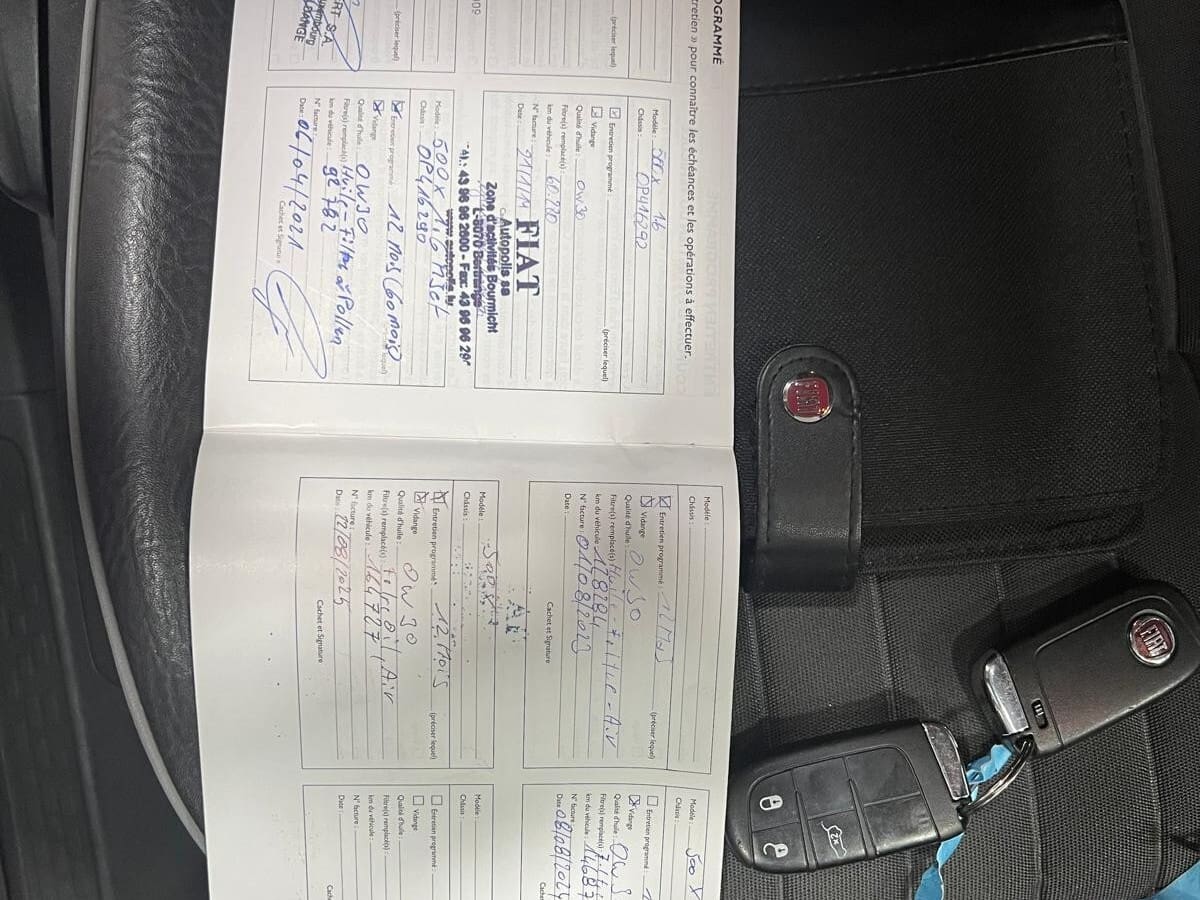 OGRAMMÉ
tretien » pour connaître les échéances et les opérations à effectuer.
(préciser lequel)
009
(préciser lequel)
RT S.A.
Modèle : 500X 1.6
Châssis : 0P416292
Entretien programmé : (préciser lequel)
Vidange
Qualité d'huile : 0W30
Filtre(s) remplacé(s) :
km du véhicule :
N° facture :
Date :
FIAT
Autopolis sa
Zone d'activités Bourmicht
L-8070 Bertrange
43 96 96 2600 - Fax: 43 96 96 29
www.autopolis.lu
Modèle : 500X 1,6
Châssis : 0P416290
Entretien programmé : 12 mois (60 mois) (préciser lequel)
Vidange
Qualité d'huile : 0W30
Filtre(s) remplacé(s) : Huile-Filtre à Pollen
km du véhicule : 92 782
N° facture :
Date : 06/04/2021
Cachet et Signature :
Modèle :
Châssis :
Entretien programmé : 12 Mois (préciser lequel)
Vidange
Qualité d'huile : 0W30
Filtre(s) remplacé(s) Huile-Filtre-Air
km du véhicule : 118284
N° facture : 01/08/2023
Date :
Cachet et Signature
Modèle : 500X
Châssis :
Entretien programmé : 12 Mois (préciser lequel)
Vidange
Qualité d'huile : 0W30
Filtre(s) remplacé(s) : Air
km du véhicule : 164727
N° facture :
Date : 22/08/2025
Cachet et Signature
Modèle : 500X
Châssis :
Entretien programmé :
Vidange
Qualité d'huile : 0W3
Filtre(s) remplacé(s)
km du véhicule : 1468
N° facture :
Date : 08/08/2024
Cache
Modèle :
Châssis :
Entretien programmé :
Vidange
Qualité d'huile :
Filtre(s) remplacé(s) :
km du véhicule :
N° facture :
Date :
Cach
FIAT
FIAT
2x